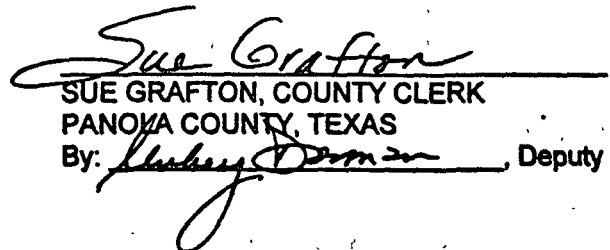 Sue Grafton
SUE GRAFTON, COUNTY CLERK
PANOLA COUNTY, TEXAS
By: , Deputy